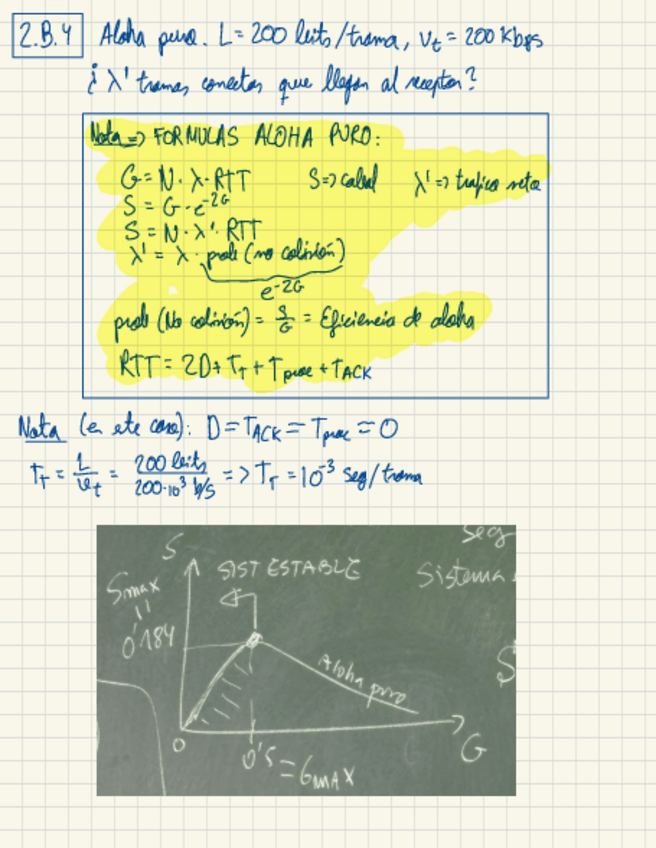 2.B.4 Aloha puro. L = 200 bits/trama, Vt = 200 Kbps
¿ λ' tramas correctas que llegan al receptor?
Nota => FORMULAS ALOHA PURO:
G = N · λ · RTT S => caudal λ' => trafico neto
S = G · e^-2G
S = N · λ' · RTT
λ' = λ · prob (no colisión)
e^-2G
prob (No colisión) = S/G = Eficiencia de aloha
RTT = 2D + Tt + Tproc + TACK
Nota (en este caso): D = TACK = Tproc = 0
Tt = L/Vt = 200 bits / 200·10^3 b/s => Tt = 10^-3 seg/trama
seg
S SIST ESTABLE Sistema
Smax
=
0'184
Aloha puro
S
0 0'5 = GMAX G